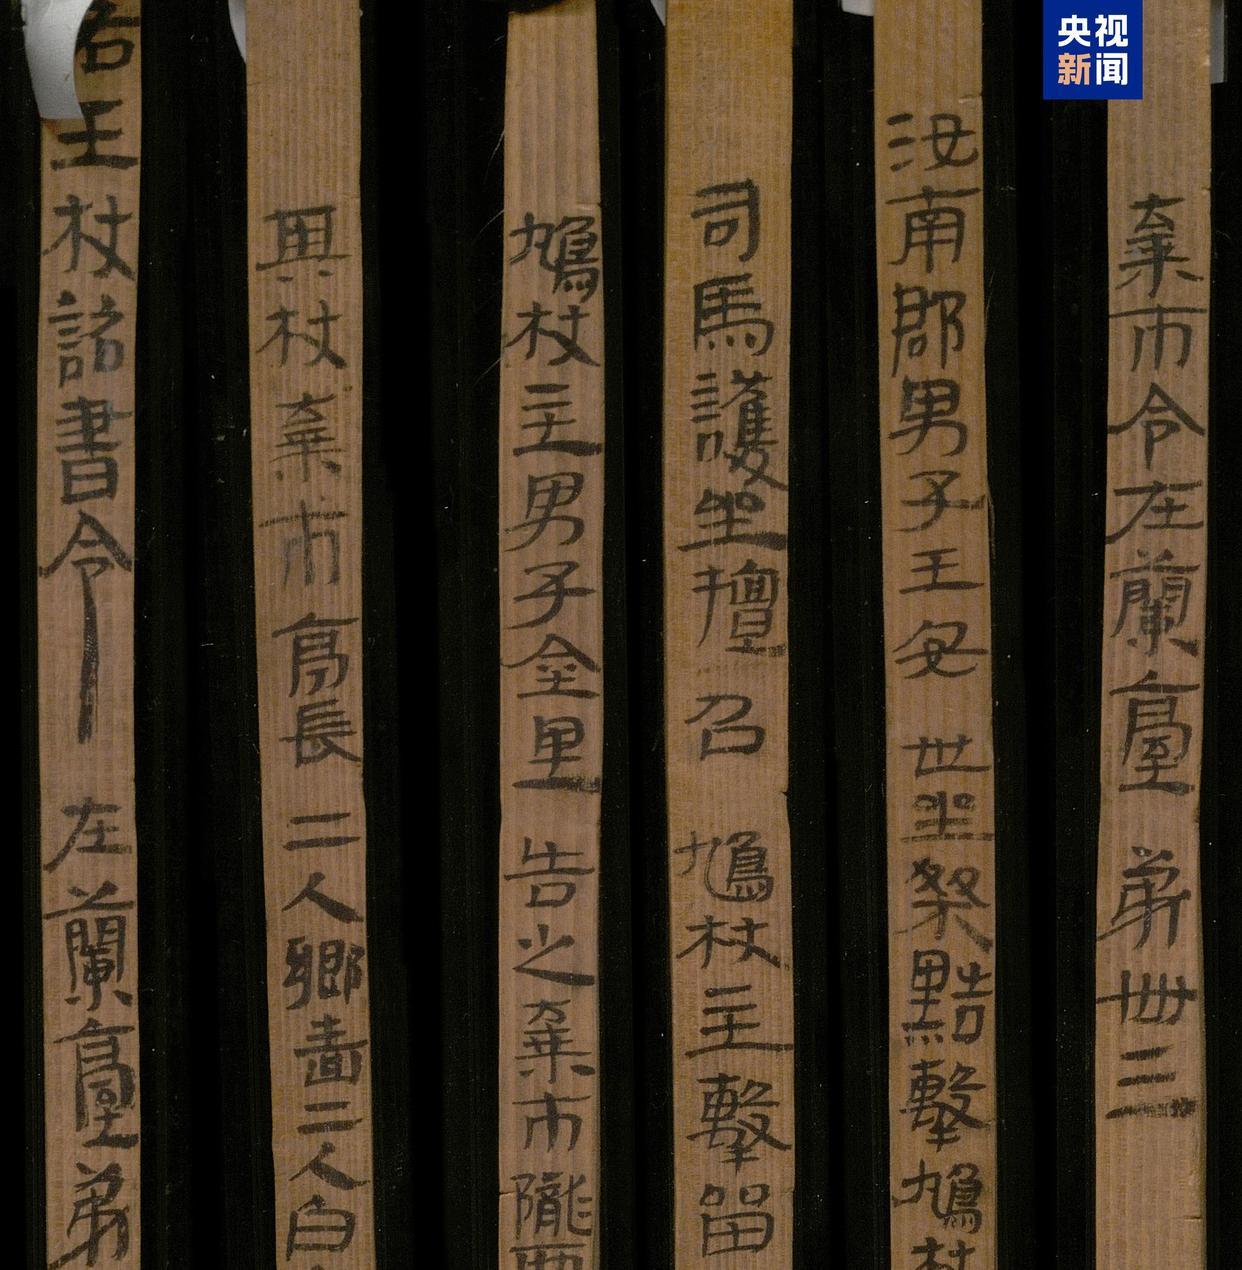 棄市令在蘭臺 弟卌三
汝南郡男子王安 世坐桀黠擊鳩杖
司馬護坐擅召 鳩杖主擊留
鳩杖主男子金里 告之棄市隴西
與杖棄市 亭長二人鄉嗇二人白
右王杖詔書令 在蘭臺弟
央视
新闻